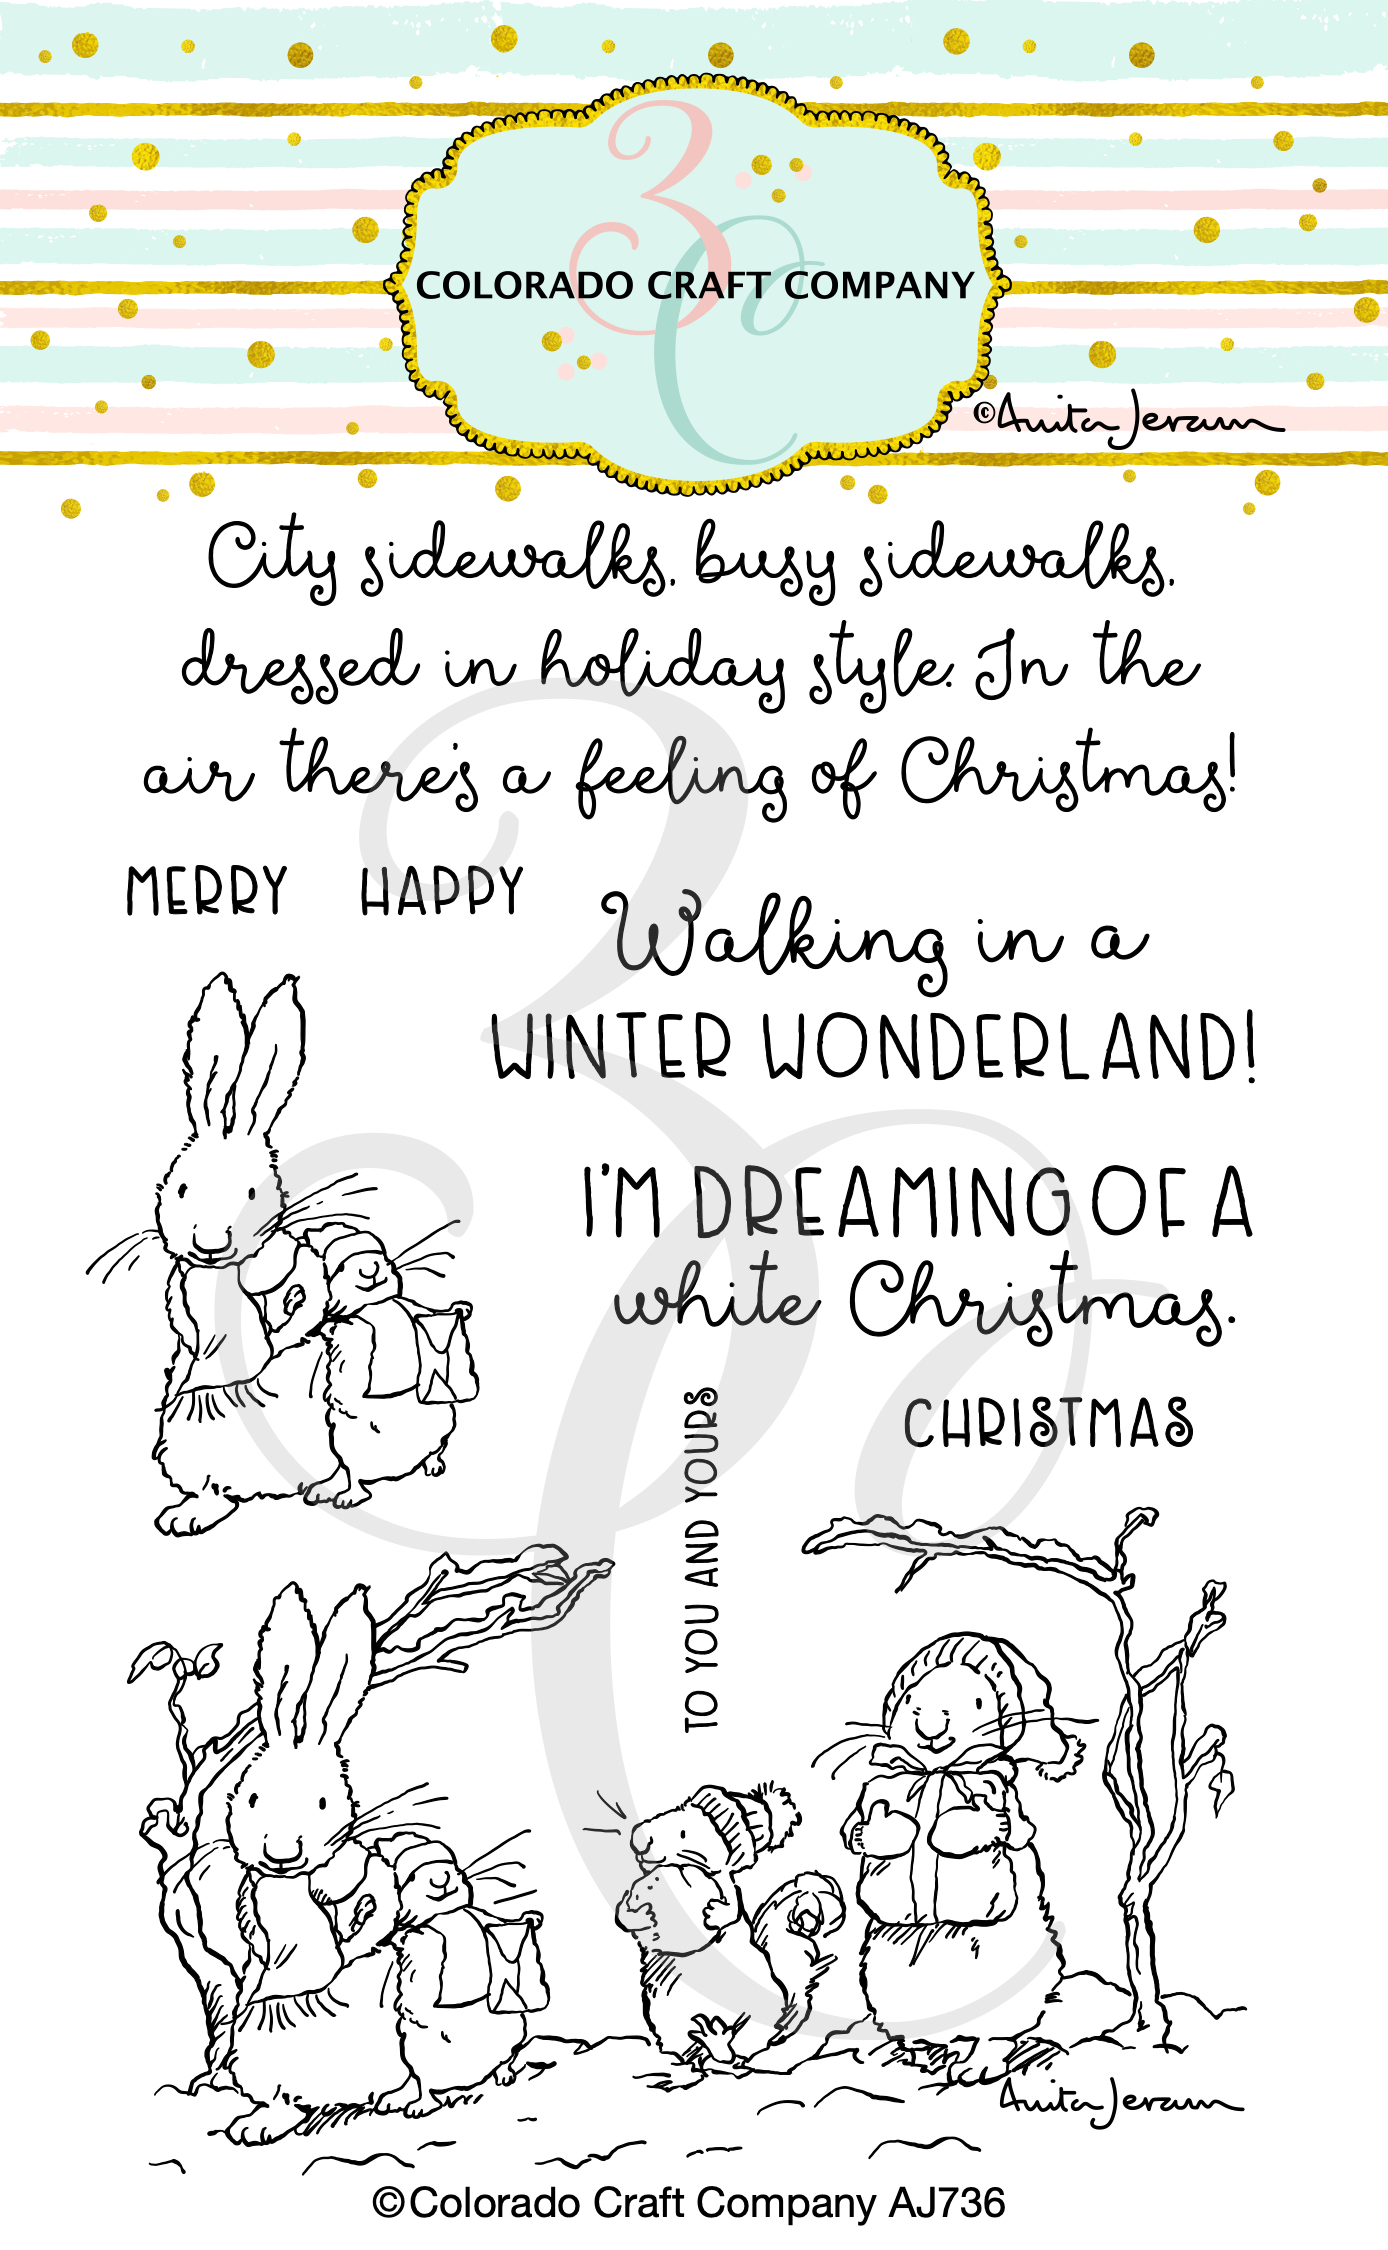 3C
COLORADO CRAFT COMPANY
©Anita Jeram
City sidewalks, busy sidewalks,
dressed in holiday style. In the
air there's a feeling of Christmas!
MERRY HAPPY
Walking in a
WINTER WONDERLAND!
I'M DREAMING OF A
white Christmas.
CHRISTMAS
TO YOU AND YOURS
Anita Jeram
©Colorado Craft Company AJ736